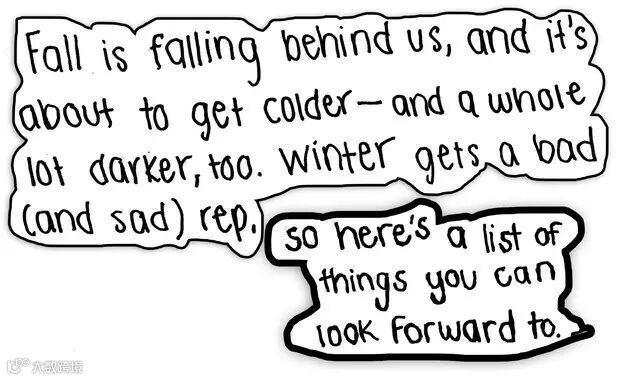 Fall is falling behind us, and it's
about to get colder—and a whole
lot darker, too. Winter gets a bad
(and sad) rep.
so here's a list of
things you can
look forward to.
大数跨境